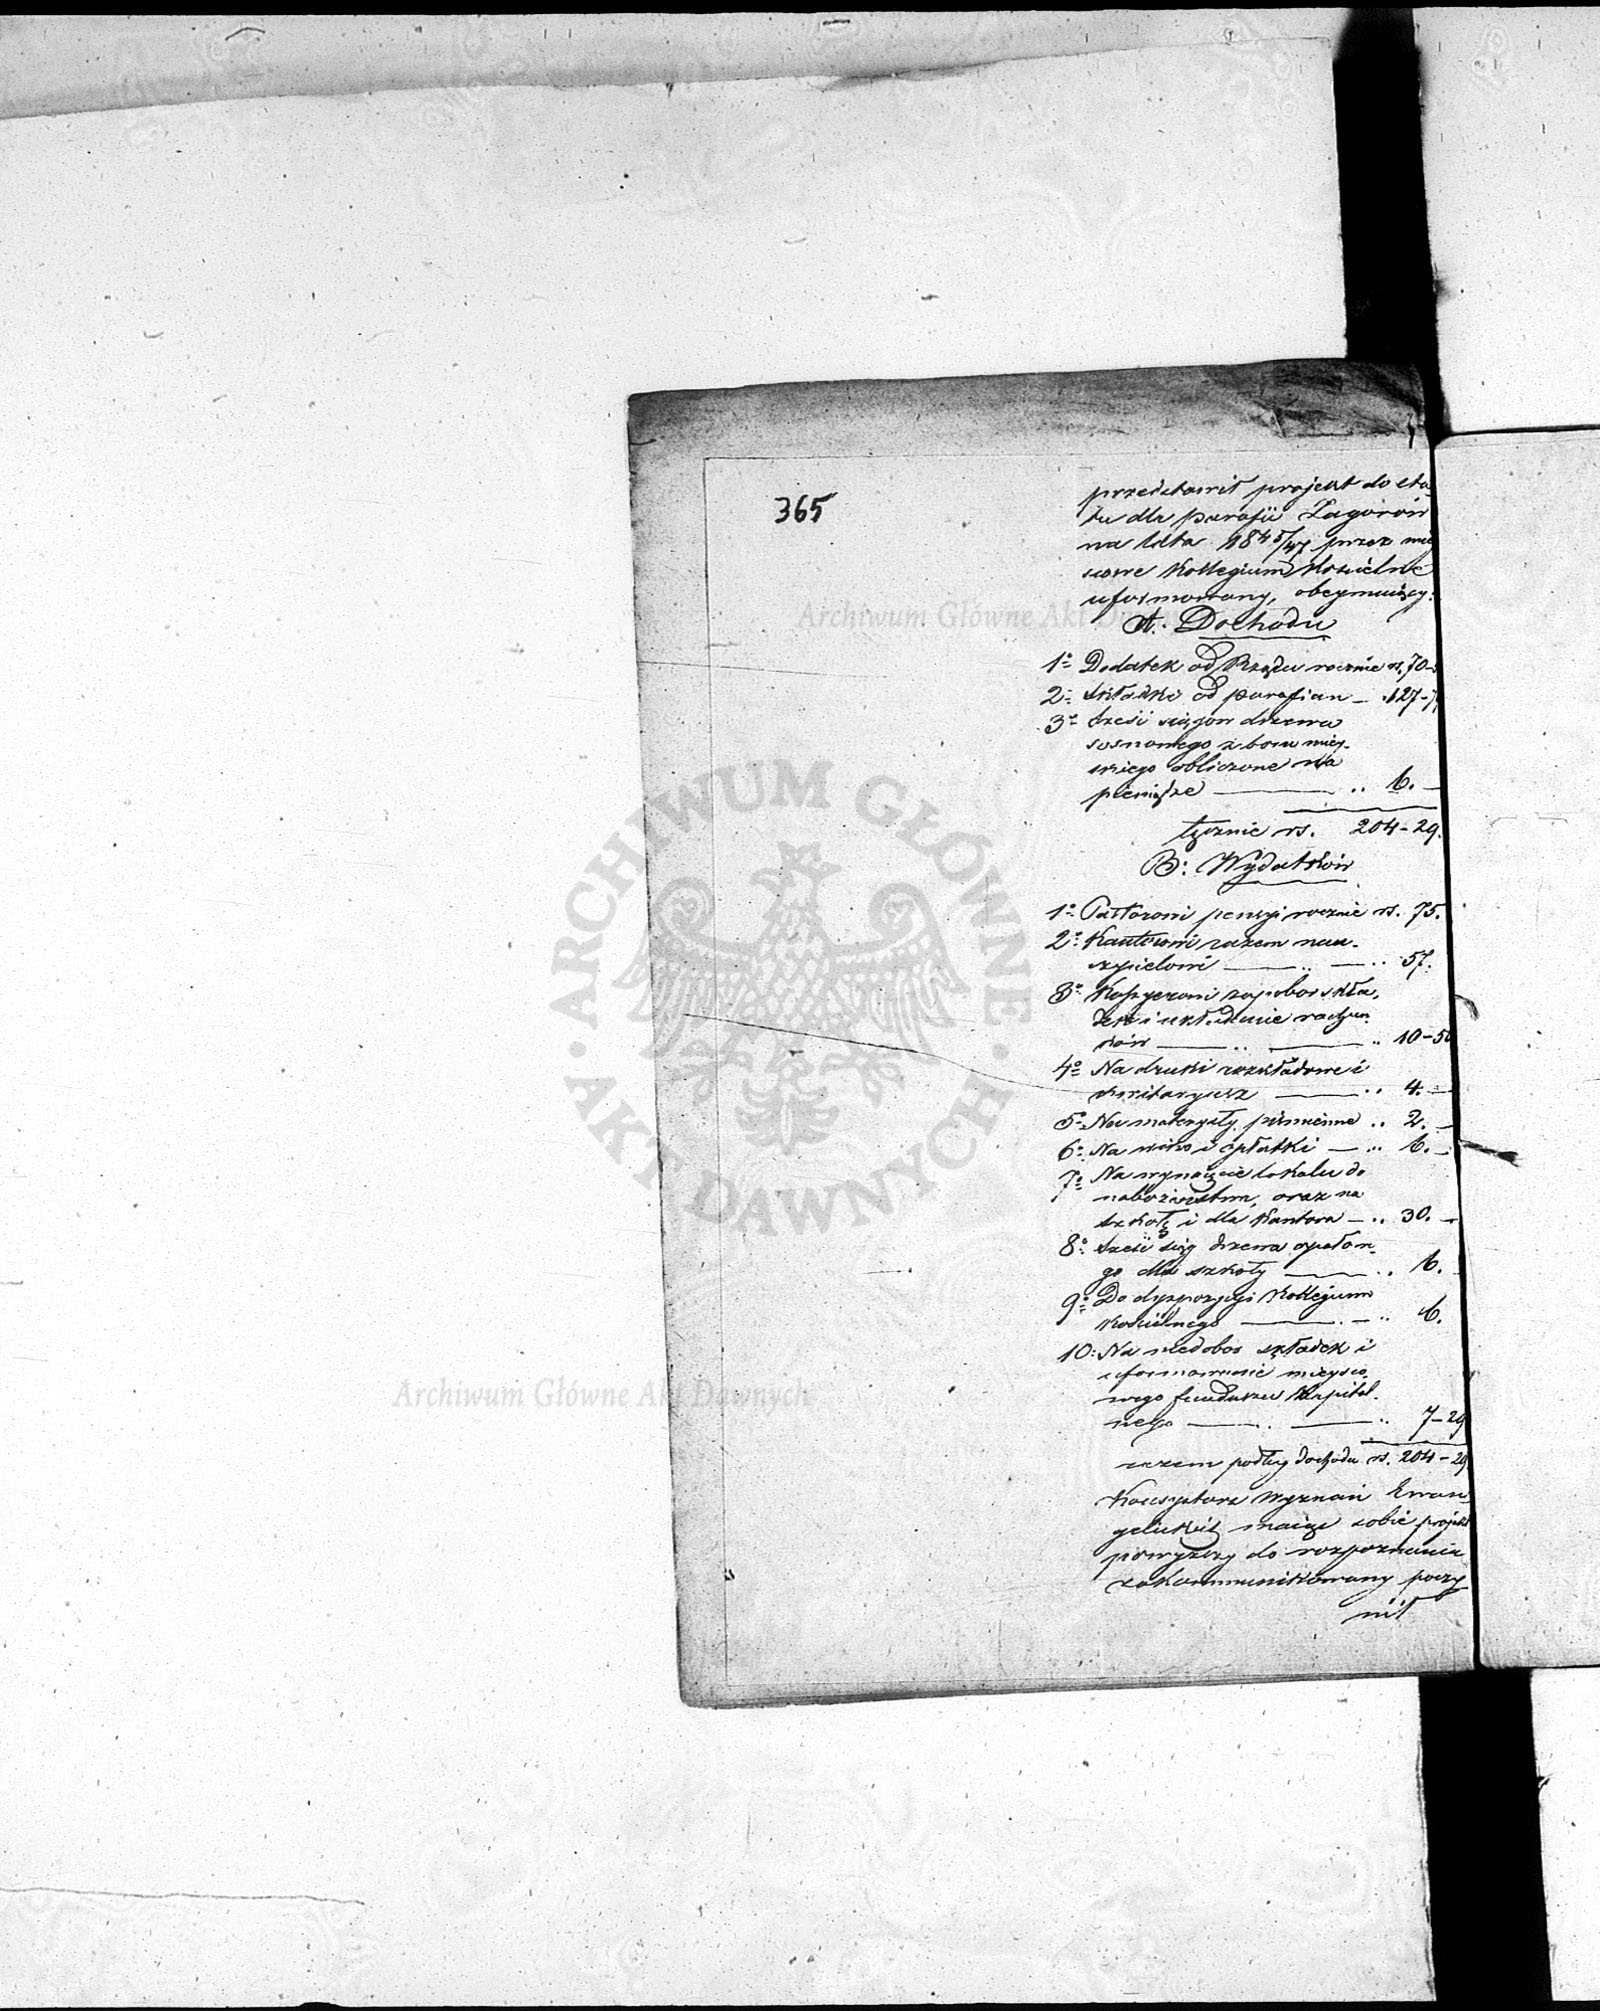 365
przedstawił projekt do eta
tu dla parafii Zagórów
na lata 1845/47 przez miej
scowe Kollegium Kościelne
uformowany, obeymujący:
A. Dochodu
1o Dodatek od Rządu rocznie rs. 70-
2o Składki od parafian — .. 127-7
3o Sześć sążon drzewa
sosnowego z boru miey-
skiego obliczone na
pieniądze — .. 6. —
łącznie rs. 204-29.
B: Wydatków
1o Pastorowi pensyi rocznie rs. 75.
2o Kantorowi razem nau-
czycielowi — .. — .. 57.
3o Kassyerowi za pobor skła-
dek i układanie rachun-
ków — .. — .. 10-50
4o Na druki rozkładowe i
kwitaryusz — .. 4. —
5o Na materyały piśmienne .. 2. —
6o Na wino i opłatki — .. 6. —
7o Na wynajęcie lokalu do
nabożeństwa, oraz na
szkołę i dla Kantora — .. 30. —
8o Sześć sąż drzewa opałow-
go dla szkoły — .. 6.
9o Do dyspozycyi Kollegium
Kościelnego — . — .. 6.
10: Na niedobor składek i
uformowanie mieysco
wego funduszu Kapital-
nego — .. — .. 7-29
razem podług dochodu rs. 204-29
Konsystorz Wyznań Ewan
gelickich mając sobie projekt
powyższy do rozpoznania
zakommunikowany poczy
nił
Archiwum Główne Akt Dawnych
ARCHIWUM GŁÓWNE · AKT DAWNYCH ·
Archiwum Główne Akt Dawnych